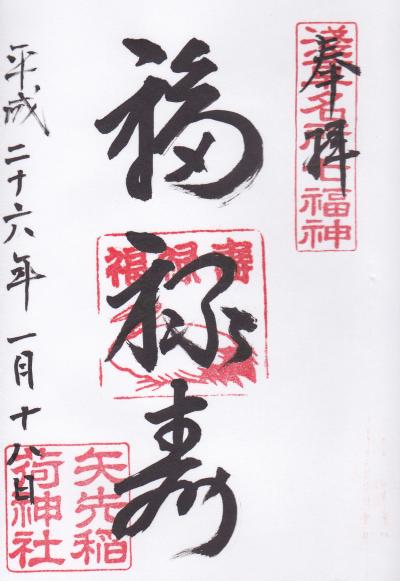 奉拝
浅草名所七福神
福禄寿
福禄寿
平成二十六年一月十八日
矢先稲
荷神社